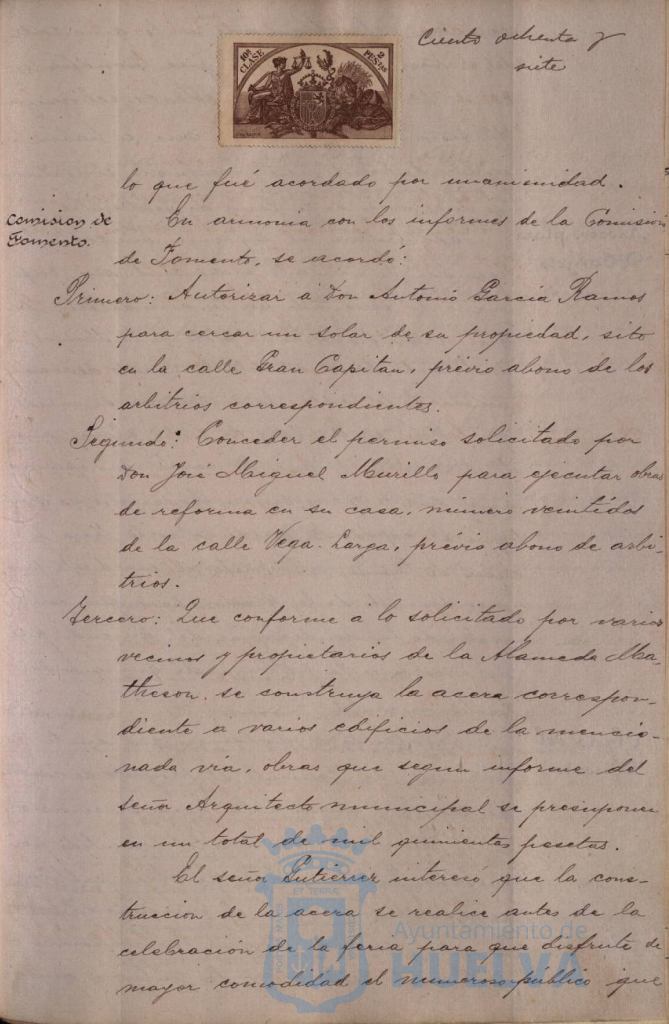 Ciento ochenta y
siete
10ª CLASE
2 PESTAS
lo que fué acordado por unanimidad.
Comision de
Fomento.
En armonia con los informes de la Comision
de Fomento, se acordó:
Primero: Autorizar á Don Antonio Garcia Ramos
para cercar un solar de su propiedad, sito
en la calle Gran Capitan, prévio abono de los
arbitrios correspondientes.
Segundo: Conceder el permiso solicitado por
Don José Miguel Murillo para ejecutar obras
de reforma en su casa, número veintidos
de la calle Vega-Larga, prévio abono de arbi-
trios.
Tercero: Que conforme á lo solicitado por varios
vecinos y propietarios de la Alameda Ma-
theson se construya la acera correspon-
diente á varios edificios de la mencio-
nada vía, obras que segun informe del
señor Arquitecto municipal se presuponen
en un total de mil quinientas pesetas.
El señor Gutierrez interesó que la cons-
truccion de la acera se realice antes de la
celebración de la feria para que disfrute de
mayor comodidad el numeroso público que
Ayuntamiento de
HUELVA